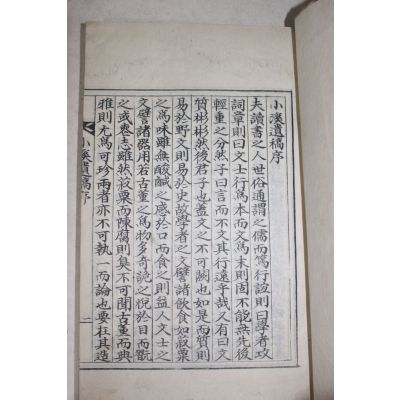 小溪遺稿序
夫讀書之人世俗通謂之儒而篤行誼則曰學者攻
詞章則曰文士行爲本而文爲末則固不能無先後
輕重之分然子曰言而不文其行遠乎哉又有曰文
質彬彬然後君子也盖文之不可闕也如是而質則
易於野文則易於史故學者之文譬諸飲食如菽粟
之爲味雖無酸鹹之感於口而食之則益人文士之
文譬諸器用若古董之爲物多奇詭之悅於目而翫
之或喪志雖然菽粟而陳腐則臭不可聞古董而典
雅則尤爲可珍兩者亦不可執一而論也要在其造
小溪遺稿序
一